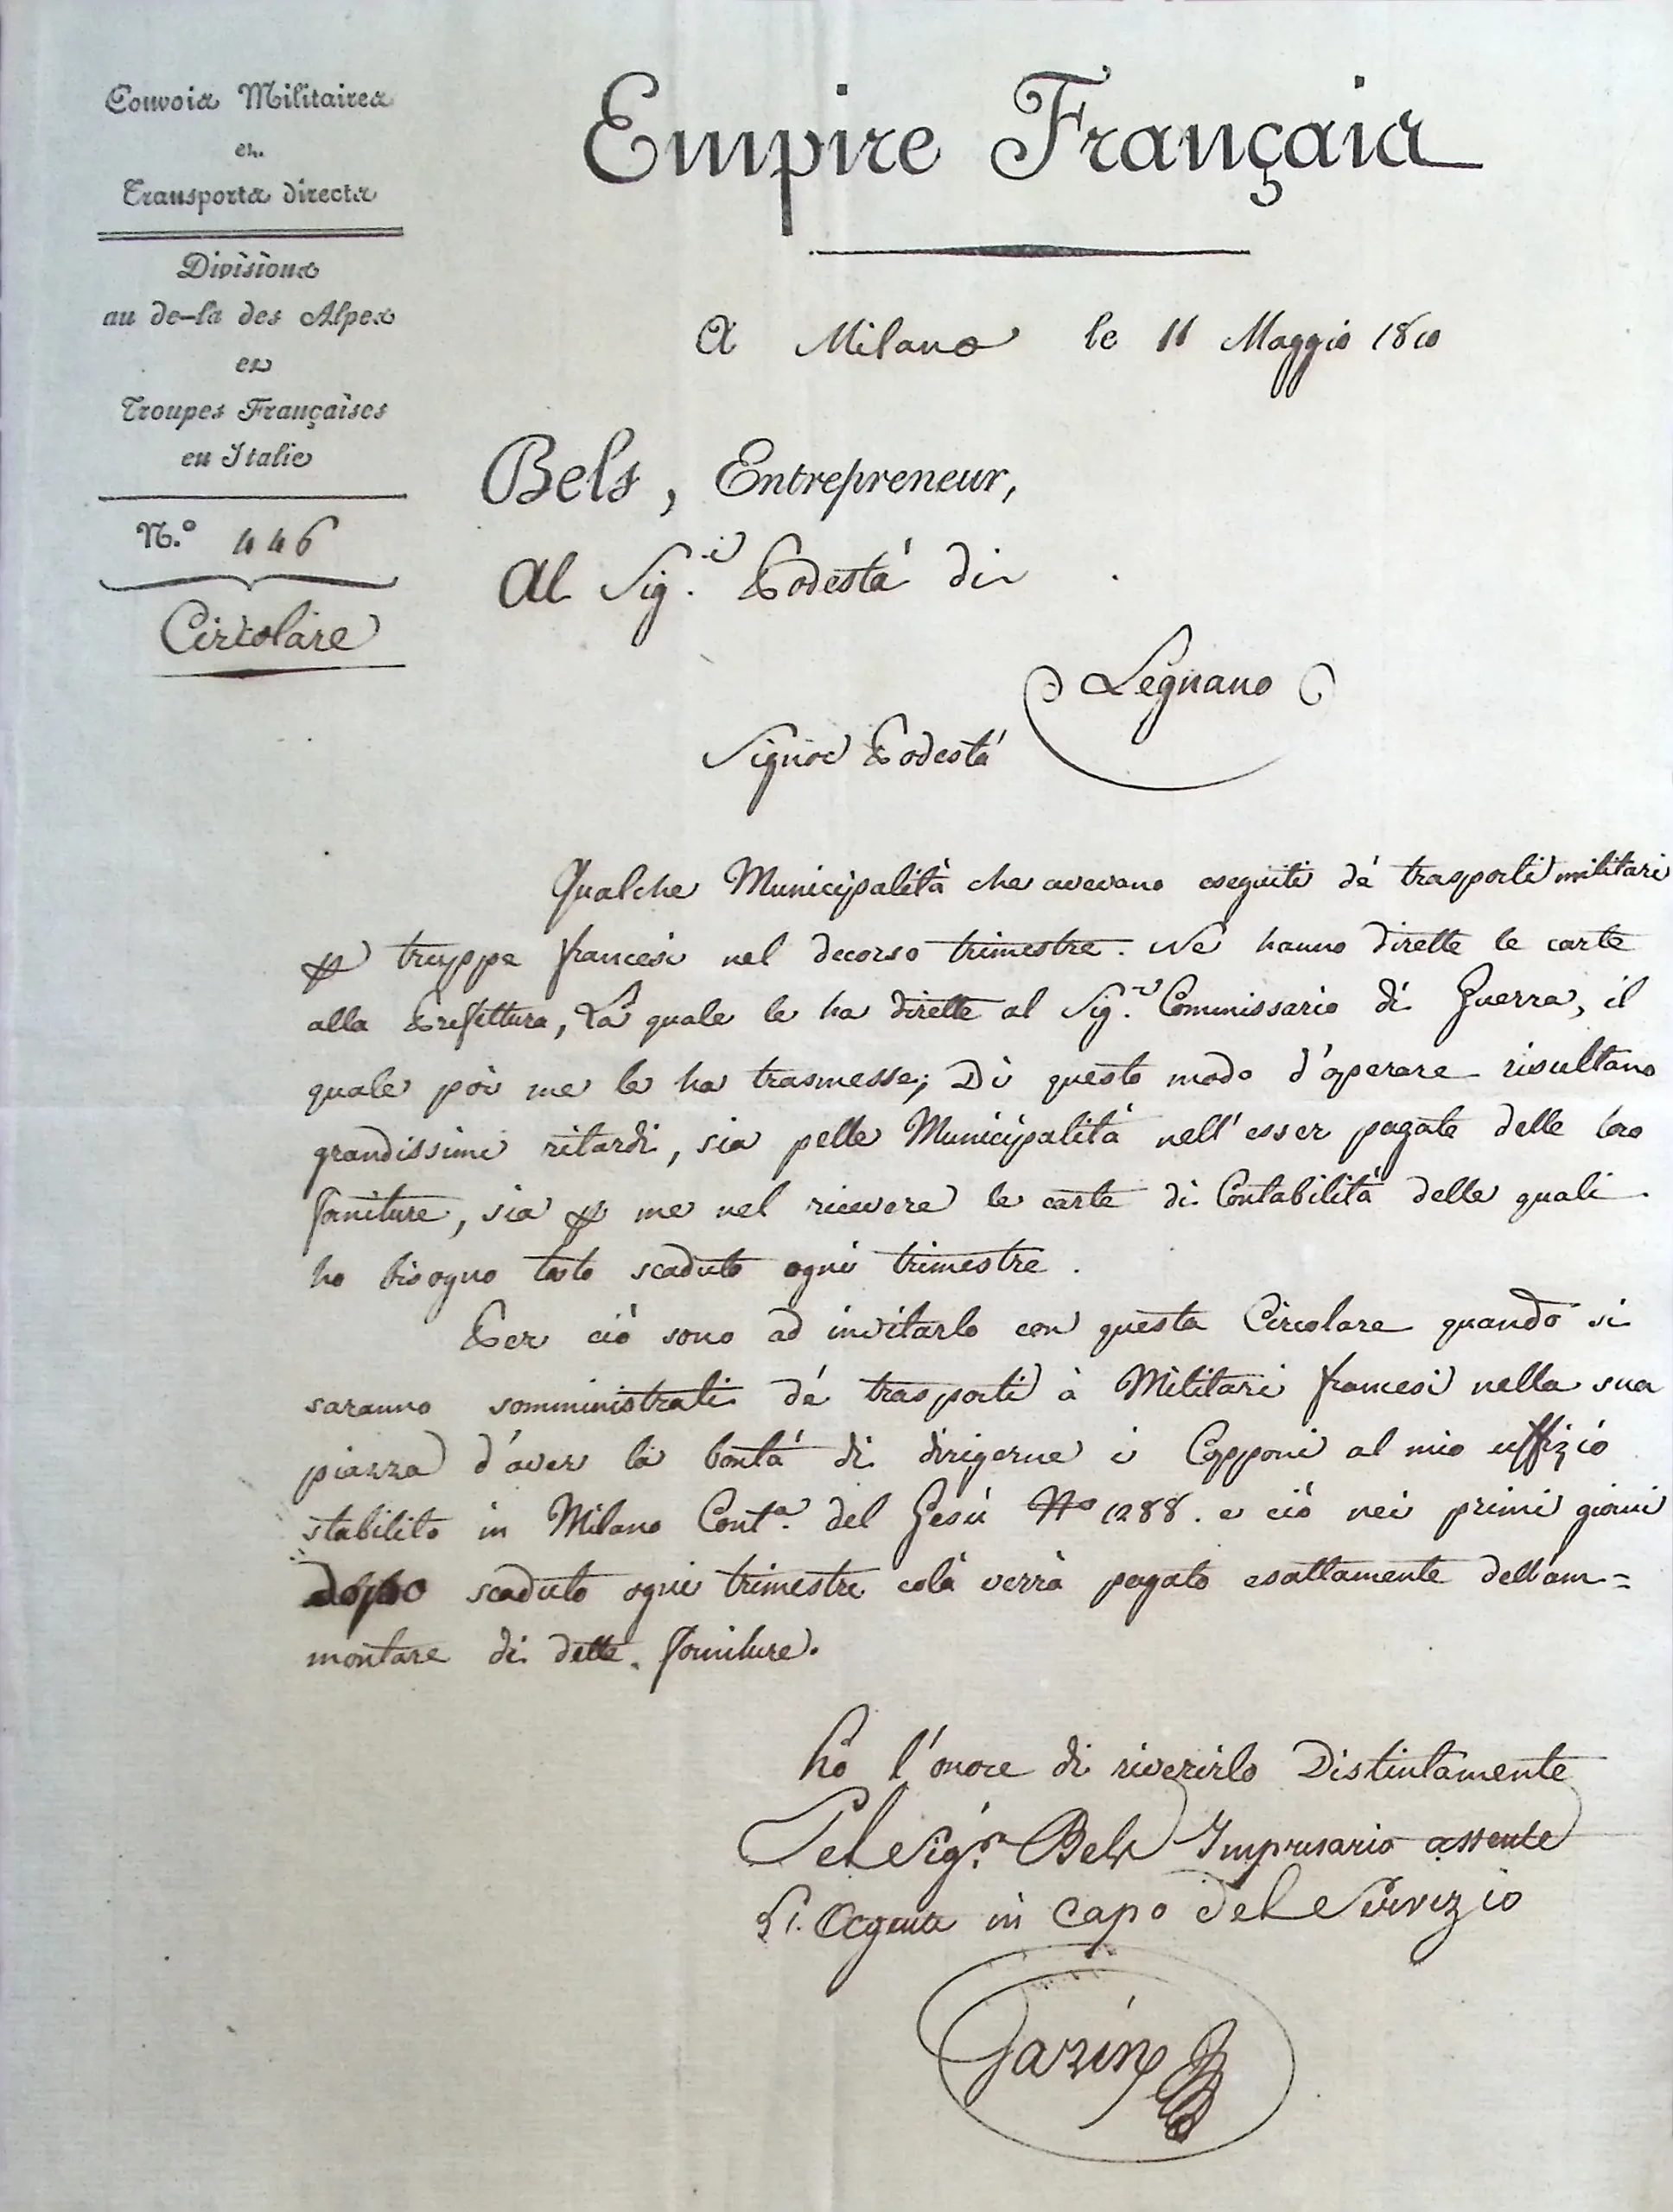 Convois Militaires
et
Transports directs
Divisions
au de-là des Alpes
et
Troupes Françaises
en Italie
N.º 446
Circolare
Empire Français
A Milano le 11 Maggio 1810
Bels, Entrepreneur,
Al Sig.r Podestà di
Legnano
Signor Podestà
Qualche Municipalità che avevano eseguiti dé trasporti militari
p truppe francesi nel decorso trimestre. Ne hanno dirette le carte
alla Prefettura, La quale le ha dirette al Sig.r Commissario di Guerra, il
quale poi me le ha trasmesse; Di questo modo d'operare risultano
grandissimi ritardi, sia pelle Municipalità nell'esser pagate delle loro
forniture, sia p me nel ricevere le carte di Contabilità delle quali
ho bisogno tosto scaduto ogni trimestre.
Per ciò sono ad invitarlo con questa Circolare quando si
saranno somministrati dé trasporti à Militari francesi nella sua
piazza d'aver la bontà di dirigerne i Copponi al mio uffizio
stabilito in Milano Cont.a del Gesù No 1288. e ciò nei primi giorni
dopo scaduto ogni trimestre colà verrà pagato esattamente dell'am=
montare di dette forniture.
hò l'onore di riverirlo Distintamente
Pel Sig.r Bels Impresario assente
L'Agente in Capo del Servizio
Garin